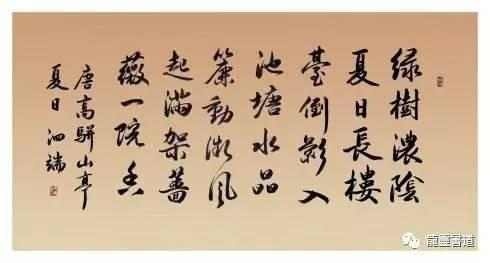 绿樹濃陰
夏日長樓
臺倒影入
池塘水晶
簾動微風
起滿架薔
薇一院香
唐高駢山亭
夏日 泗端